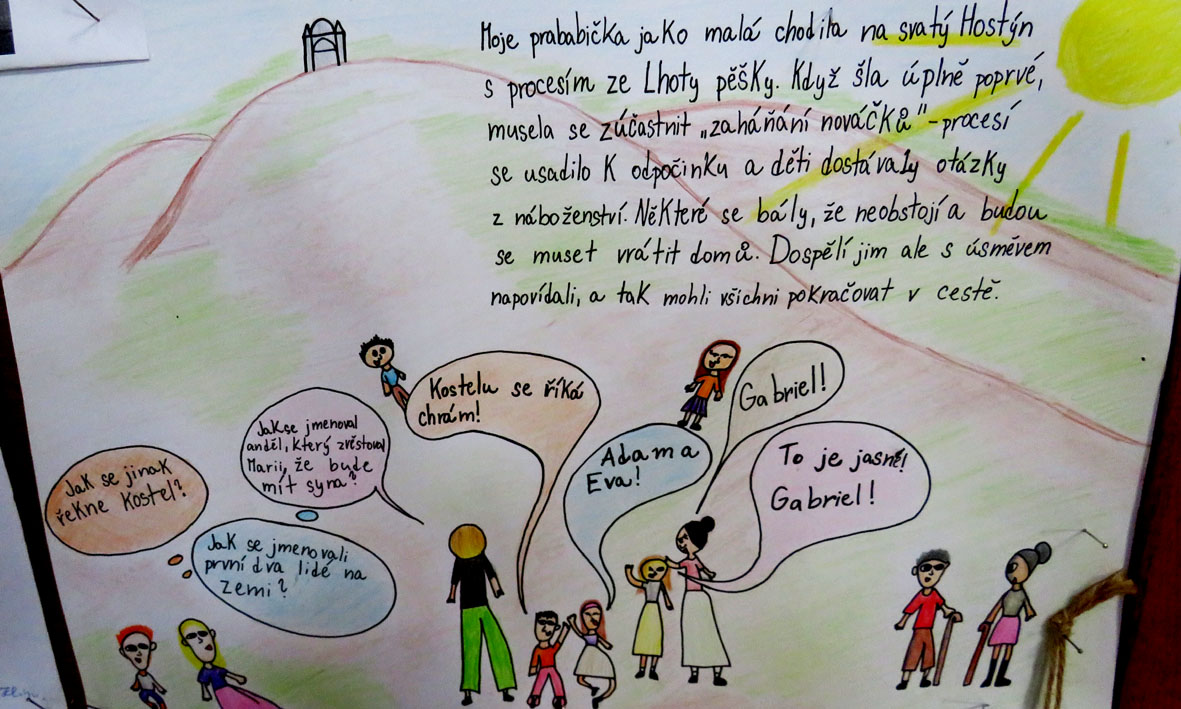 Moje prababička jako malá chodila na svatý Hostýn
s procesím ze Lhoty pěšky. Když šla úplně poprvé,
musela se zúčastnit „zaháňání nováčků" - procesí
se usadilo k odpočinku a děti dostávaly otázky
z náboženství. Některé se bály, že neobstojí a budou
se muset vrátit domů. Dospělí jim ale s úsměvem
napovídali, a tak mohli všichni pokračovat v cestě.
Jak se jinak
řekne kostel?
Jak se jmenovali
první dva lidé na
Zemi?
Jak se jmenoval
anděl, který zvěstoval
Marii, že bude
mít syna?
Kostelu se říká
chrám!
Adam a
Eva!
Gabriel!
To je jasné!
Gabriel!